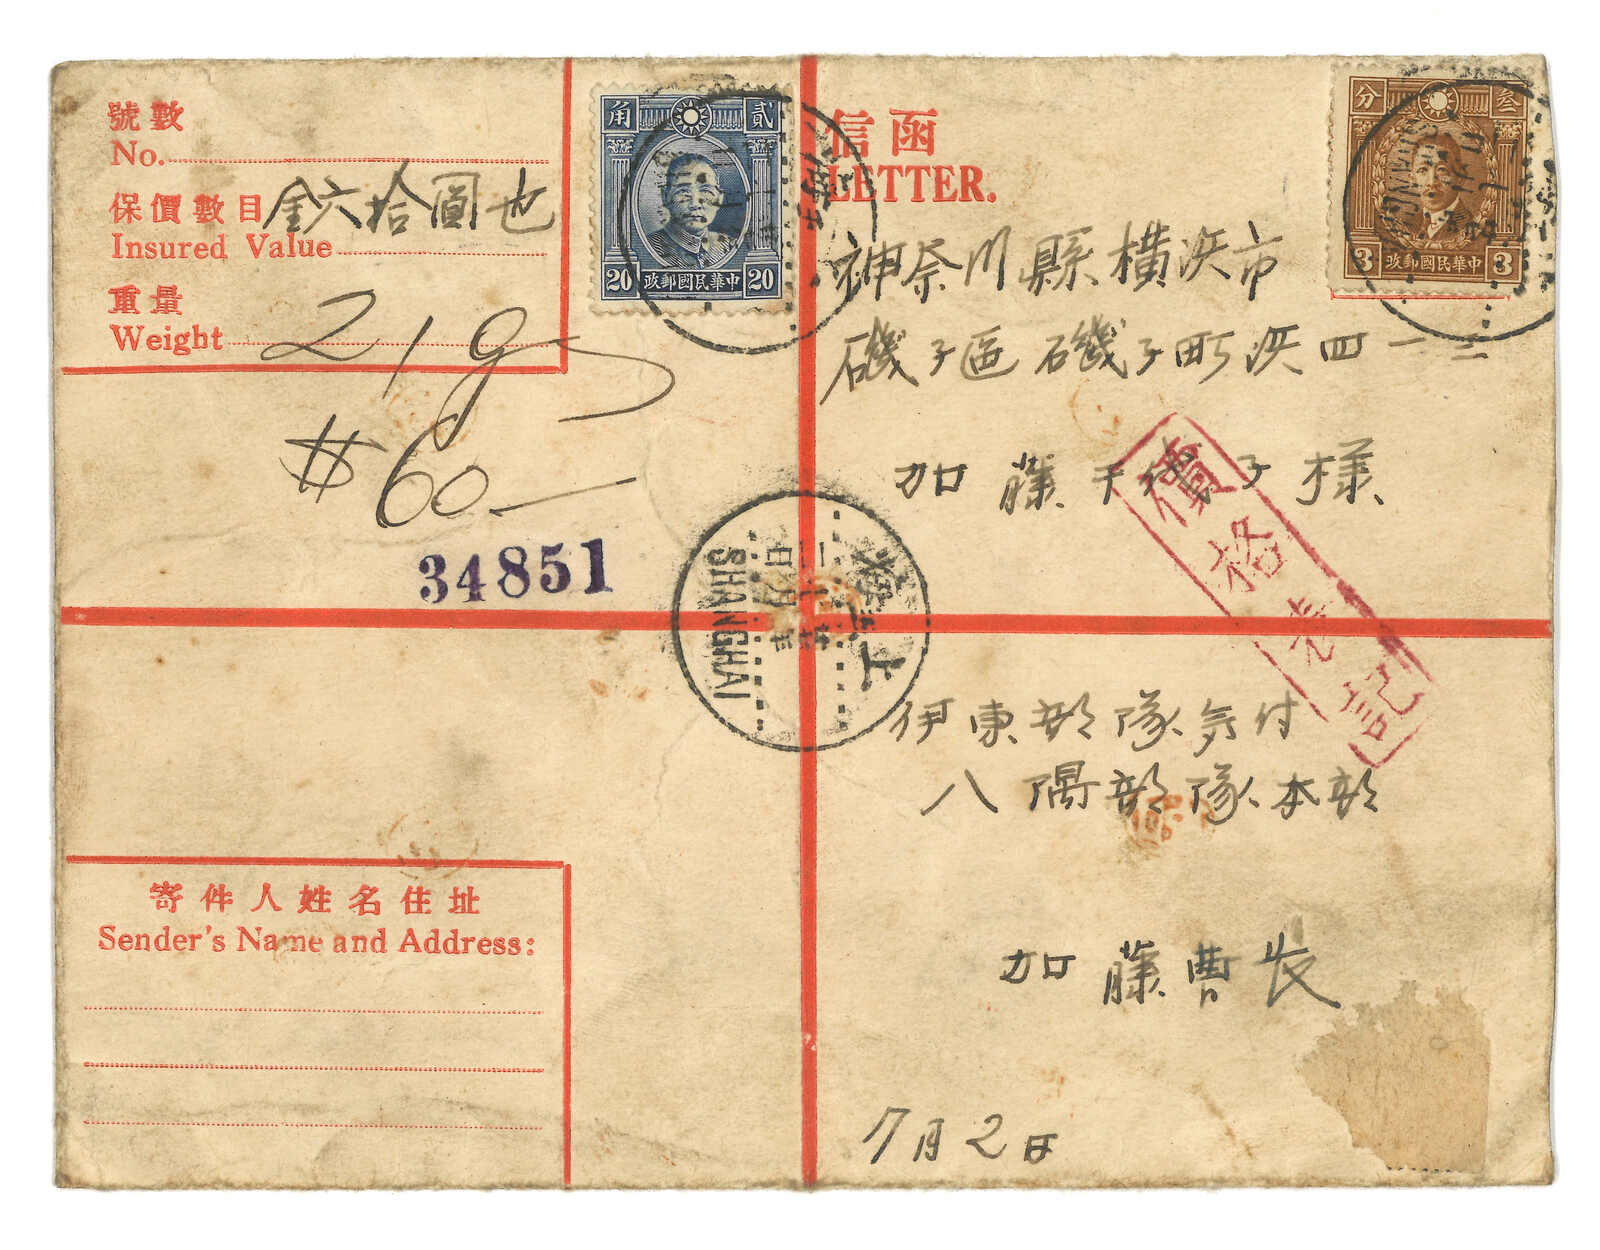 號數
No.
保價數目 金六拾圓也
Insured Value
重量
Weight 21gs
$60—
34851
角 貳
20 政郵國民華中 20
信函
LETTER.
分 叁
3 政郵國民華中 3
神奈川縣橫浜市
磯子區磯子町浜四一三
加藤千代子様
價格表記
上海
SHANGHAI
伊東部隊気付
八隅部隊本部
加藤曹長
7月2日
寄件人姓名住址
Sender's Name and Address: